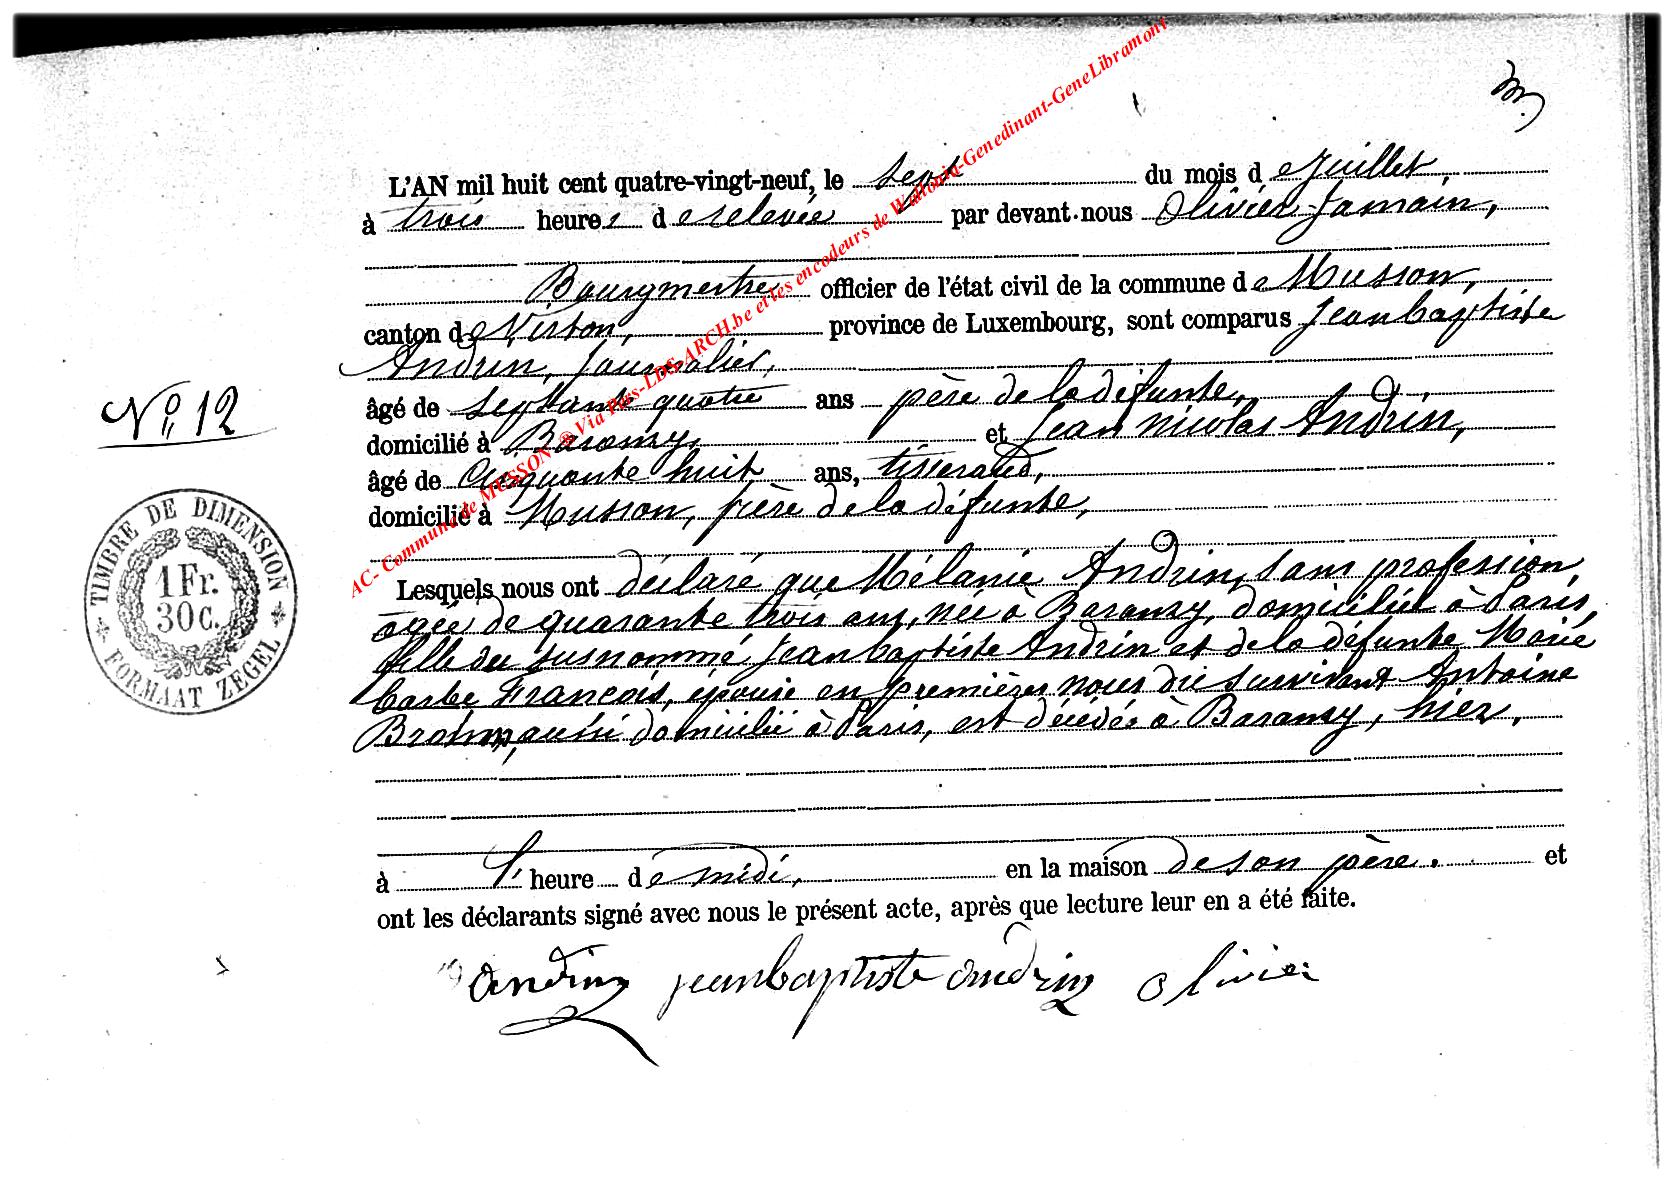 L'AN mil huit cent quatre-vingt-neuf, le sept du mois de Juillet,
à trois heures de relevée par devant nous Olivier Jamain,
Bourgmestre officier de l'état civil de la commune de Musson,
canton de Virton, province de Luxembourg, sont comparus Jean baptiste
Andrin, Journalier,
âgé de septante quatre ans père de la défunte,
domicilié à Baranzy, et Jean Nicolas Andrin,
N° 12
âgé de Cinquante huit ans, tisserand,
domicilié à Musson, frère de la défunte,
Lesquels nous ont déclaré que Mélanie Andrin, sans profession,
agée de quarante trois ans, née à Baranzy, domiciliée à Paris,
fille du susnommé Jean baptiste Andrin et de la défunte Marie
barbe François, épouse en premières noces du survivant Antoine
aussi domicilié à Paris, est décédée à Baranzy, hier,
à l'heure de midi, en la maison de son père. et
ont les déclarants signé avec nous le présent acte, après que lecture leur en a été faite.
andrin jean baptiste andrin Olivier
TIMBRE DE DIMENSION
1 Fr.
30 c.
FORMAAT ZEGEL
AC- Commune de MUSSON @ Via Pays-LDS-ARCH.be et les encodeurs de Wallonia-Genedinant-GeneLibramont